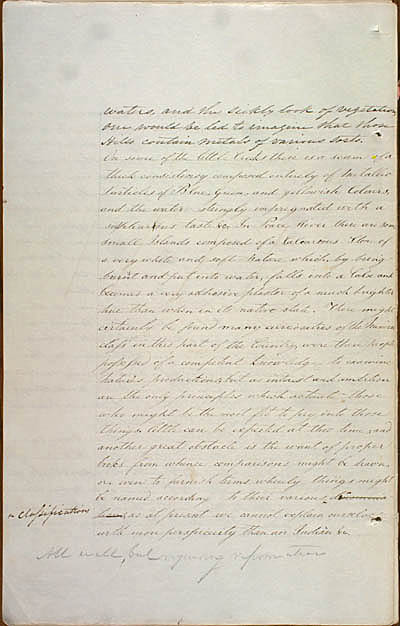 waters, and the sickly look of vegetation
one would be led to imagine that those
Hills contain metals of various sorts.
In some of the little Creeks there is a scum of a
thick consistency composed entirely of metallic
particles of Blue, Green, and yellowish Colours,
and the water strongly impregnated with a
sulphurous taste &c. In Peace River there are some
small Islands composed of a Calcareous Stone of
a very white and soft nature which, by being
burnt and put into water, falls into a Cake and
becomes a very adhesive plaster of a much brighter
hue than when in its native state. There might
certainly be found many curiosities of the
class in this part of the Country, were there people
possessed of a competent knowledge to examine
Nature's productions, but as interest and ambition
are the only principles which actuate those
who might be the most fit to pry into those
things little can be expected at this time, and
another great obstacle is the want of proper
books from whence comparisons might be drawn
or even to furnish terms whereby things might
be named according to their various
classifications
as at present we cannot explain ourselves
with more perspicuity than an Indian &c.
All well, but requiring